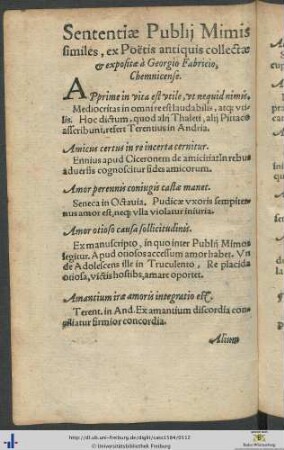 Sententiæ Publij Mimis
similes, ex Poëtis antiquis collectæ
& expositæ à Georgio Fabricio,
Chemnicense.
APprime in vita est vtile, vt nequid nimis,
Mediocritas in omni re est laudabilis, atq; vti-
lis. Hoc dictum, quod alij Thaleti, alij Pittaco
asscribunt, refert Terentius in Andria.
Amicus certus in re incerta cernitur.
Ennius apud Ciceronem de amicitia: In rebus
aduersis cognoscitur fides amicorum.
Amor perennis coniugis castæ manet.
Seneca in Octauia. Pudicæ vxoris sempiter-
nus amor est, neq; vlla violatur iniuria.
Amor otioso causa sollicitudinis.
Ex manuscripto, in quo inter Publij Mimos
legitur. Apud otiosos accessum amor habet. Vn
de Adolescens ille in Truculento, Re placida
otiosa, victis hostibus, amare oportet.
Amantium iræ amoris integratio est.
Terent. in And. Ex amantium discordia con-
ciliatur firmior concordia.
Alium
http://dl.ub.uni-freiburg.de/diglit/cato1584/0112
© Universitätsbibliothek Freiburg
Baden-Württemberg